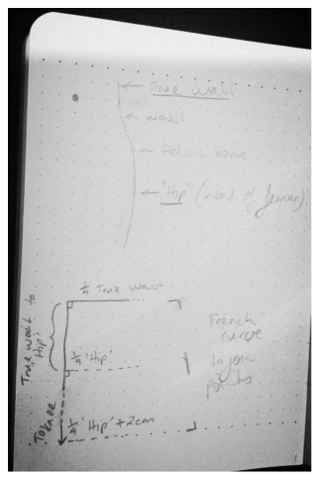 True waist
Pelvic bone
"Hip" (head of femur)
1/4 True waist
True waist to
'Hip'
1/4 'Hip'
To knee
1/4 'Hip' + 2cm
French
curve
to join
points